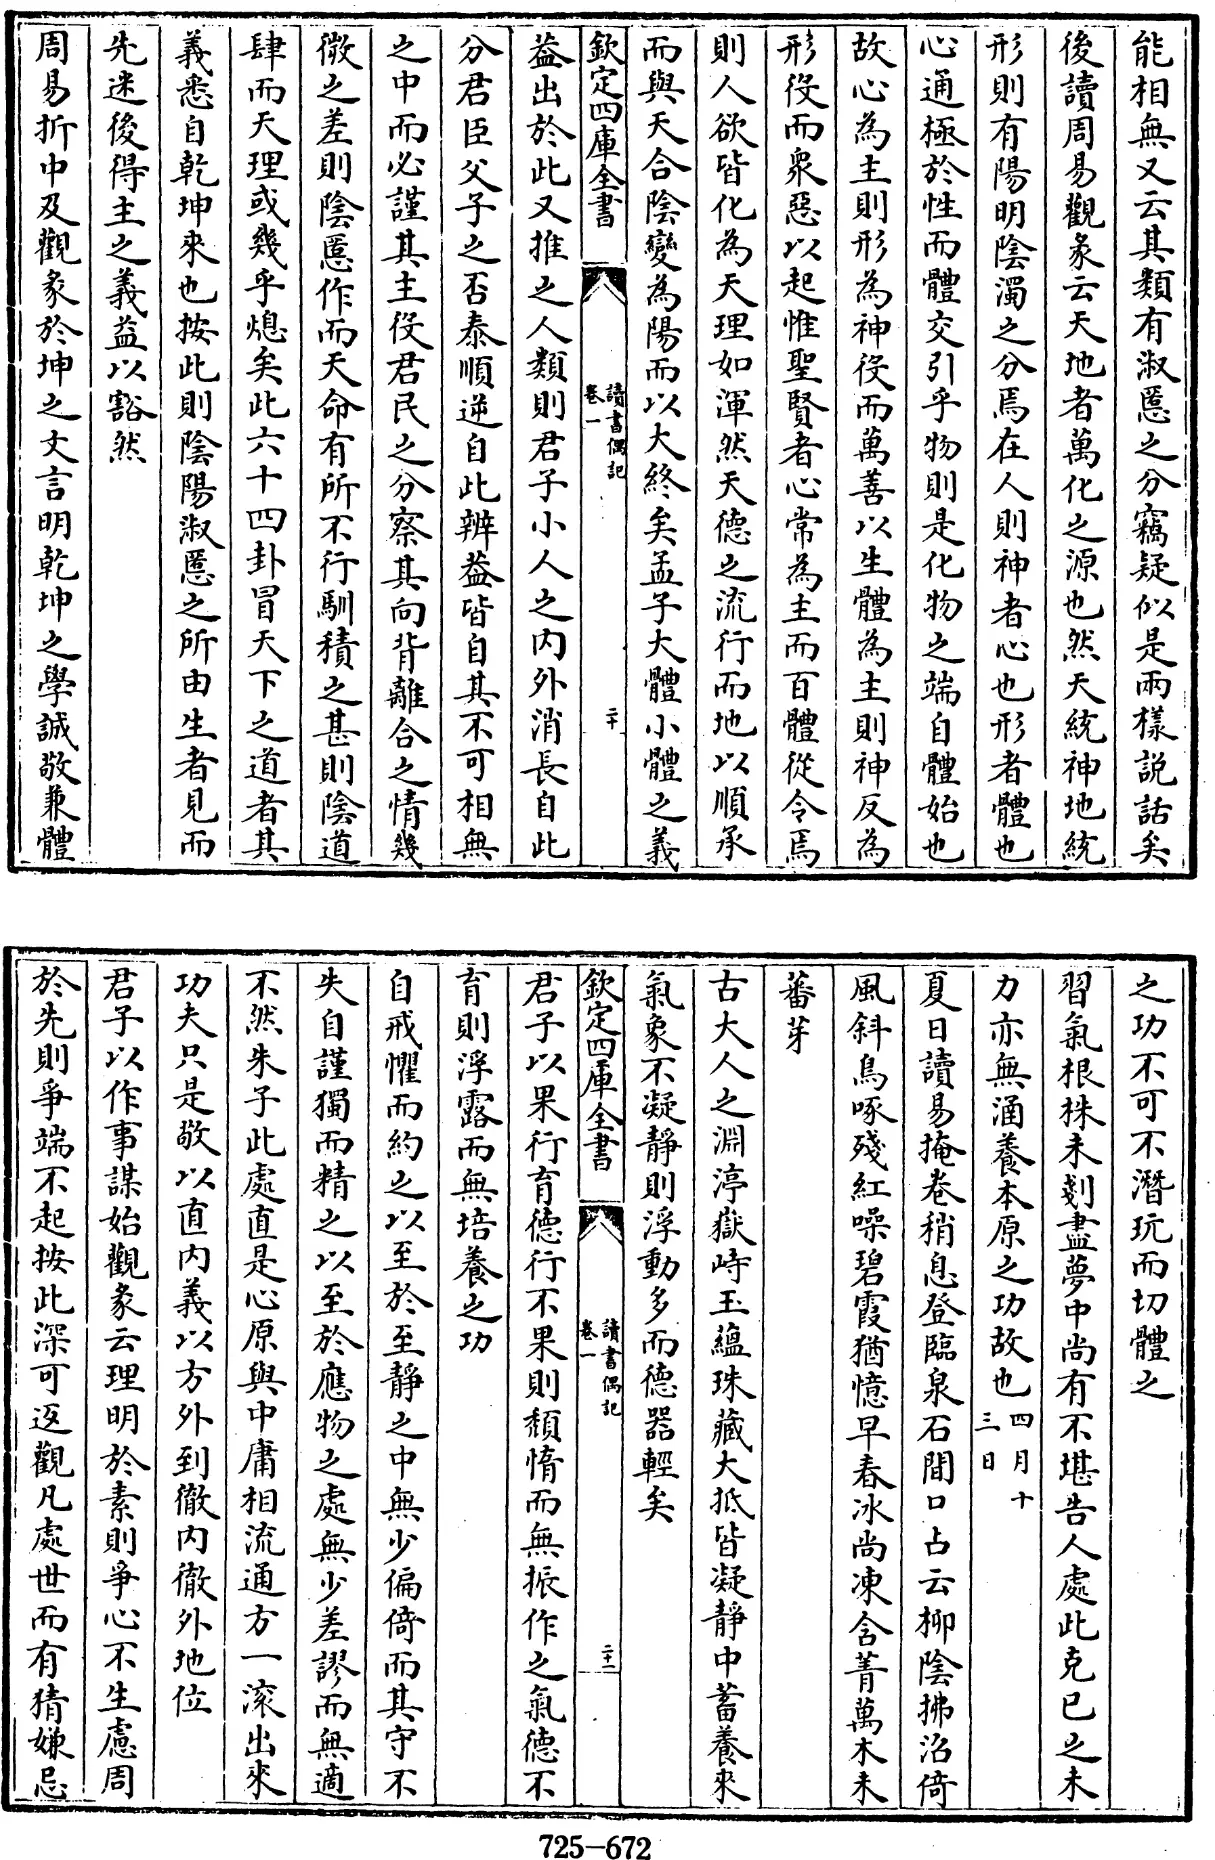 能相無又云其類有淑慝之分竊疑似是兩樣説話矣
後讀周易觀彖云天地者萬化之源也然天統神地統
形則有陽明陰濁之分焉在人則神者心也形者體也
心通極於性而體交引乎物則是化物之端自體始也
故心為主則形為神役而萬善以生體為主則神反為
形役而衆惡以起惟聖賢者心常為主而百體從令焉
則人欲皆化為天理如渾然天德之流行而地以順承
而與天合陰變為陽而以大終矣孟子大體小體之義
欽定四庫全書
讀書偶記
卷一
二十
葢出於此又推之人類則君子小人之内外消長自此
分君臣父子之否泰順逆自此辨葢皆自其不可相無
之中而必謹其主役君民之分察其向背離合之情幾
微之差則陰慝作而天命有所不行馴積之甚則陰道
肆而天理或幾乎熄矣此六十四卦冒天下之道者其
義悉自乾坤來也按此則陰陽淑慝之所由生者見而
先迷後得主之義益以豁然
周易折中及觀彖於坤之文言明乾坤之學誠敬兼體
之功不可不潛玩而切體之
習氣根株未剗盡夢中尚有不堪告人處此克已之未
力亦無涵養本原之功故也四月十
三日
夏日讀易掩卷稍息登臨泉石間口占云柳陰拂沼倚
風斜鳥啄殘紅噪碧霞猶憶早春冰尚凍含菁萬木未
蕃芽
古大人之淵渟嶽峙玉蘊珠藏大抵皆凝靜中蓄養來
氣象不凝靜則浮動多而德器輕矣
欽定四庫全書
讀書偶記
卷一
二十一
君子以果行育德行不果則頽惰而無振作之氣德不
育則浮露而無培養之功
自戒懼而約之以至於至靜之中無少偏倚而其守不
失自謹獨而精之以至於應物之處無少差謬而無適
不然朱子此處直是心原與中庸相流通方一滚出來
功夫只是敬以直内義以方外到徹内徹外地位
君子以作事謀始觀彖云理明於素則爭心不生慮周
於先則爭端不起按此深可返觀凡處世而有猜嫌忌
725-672